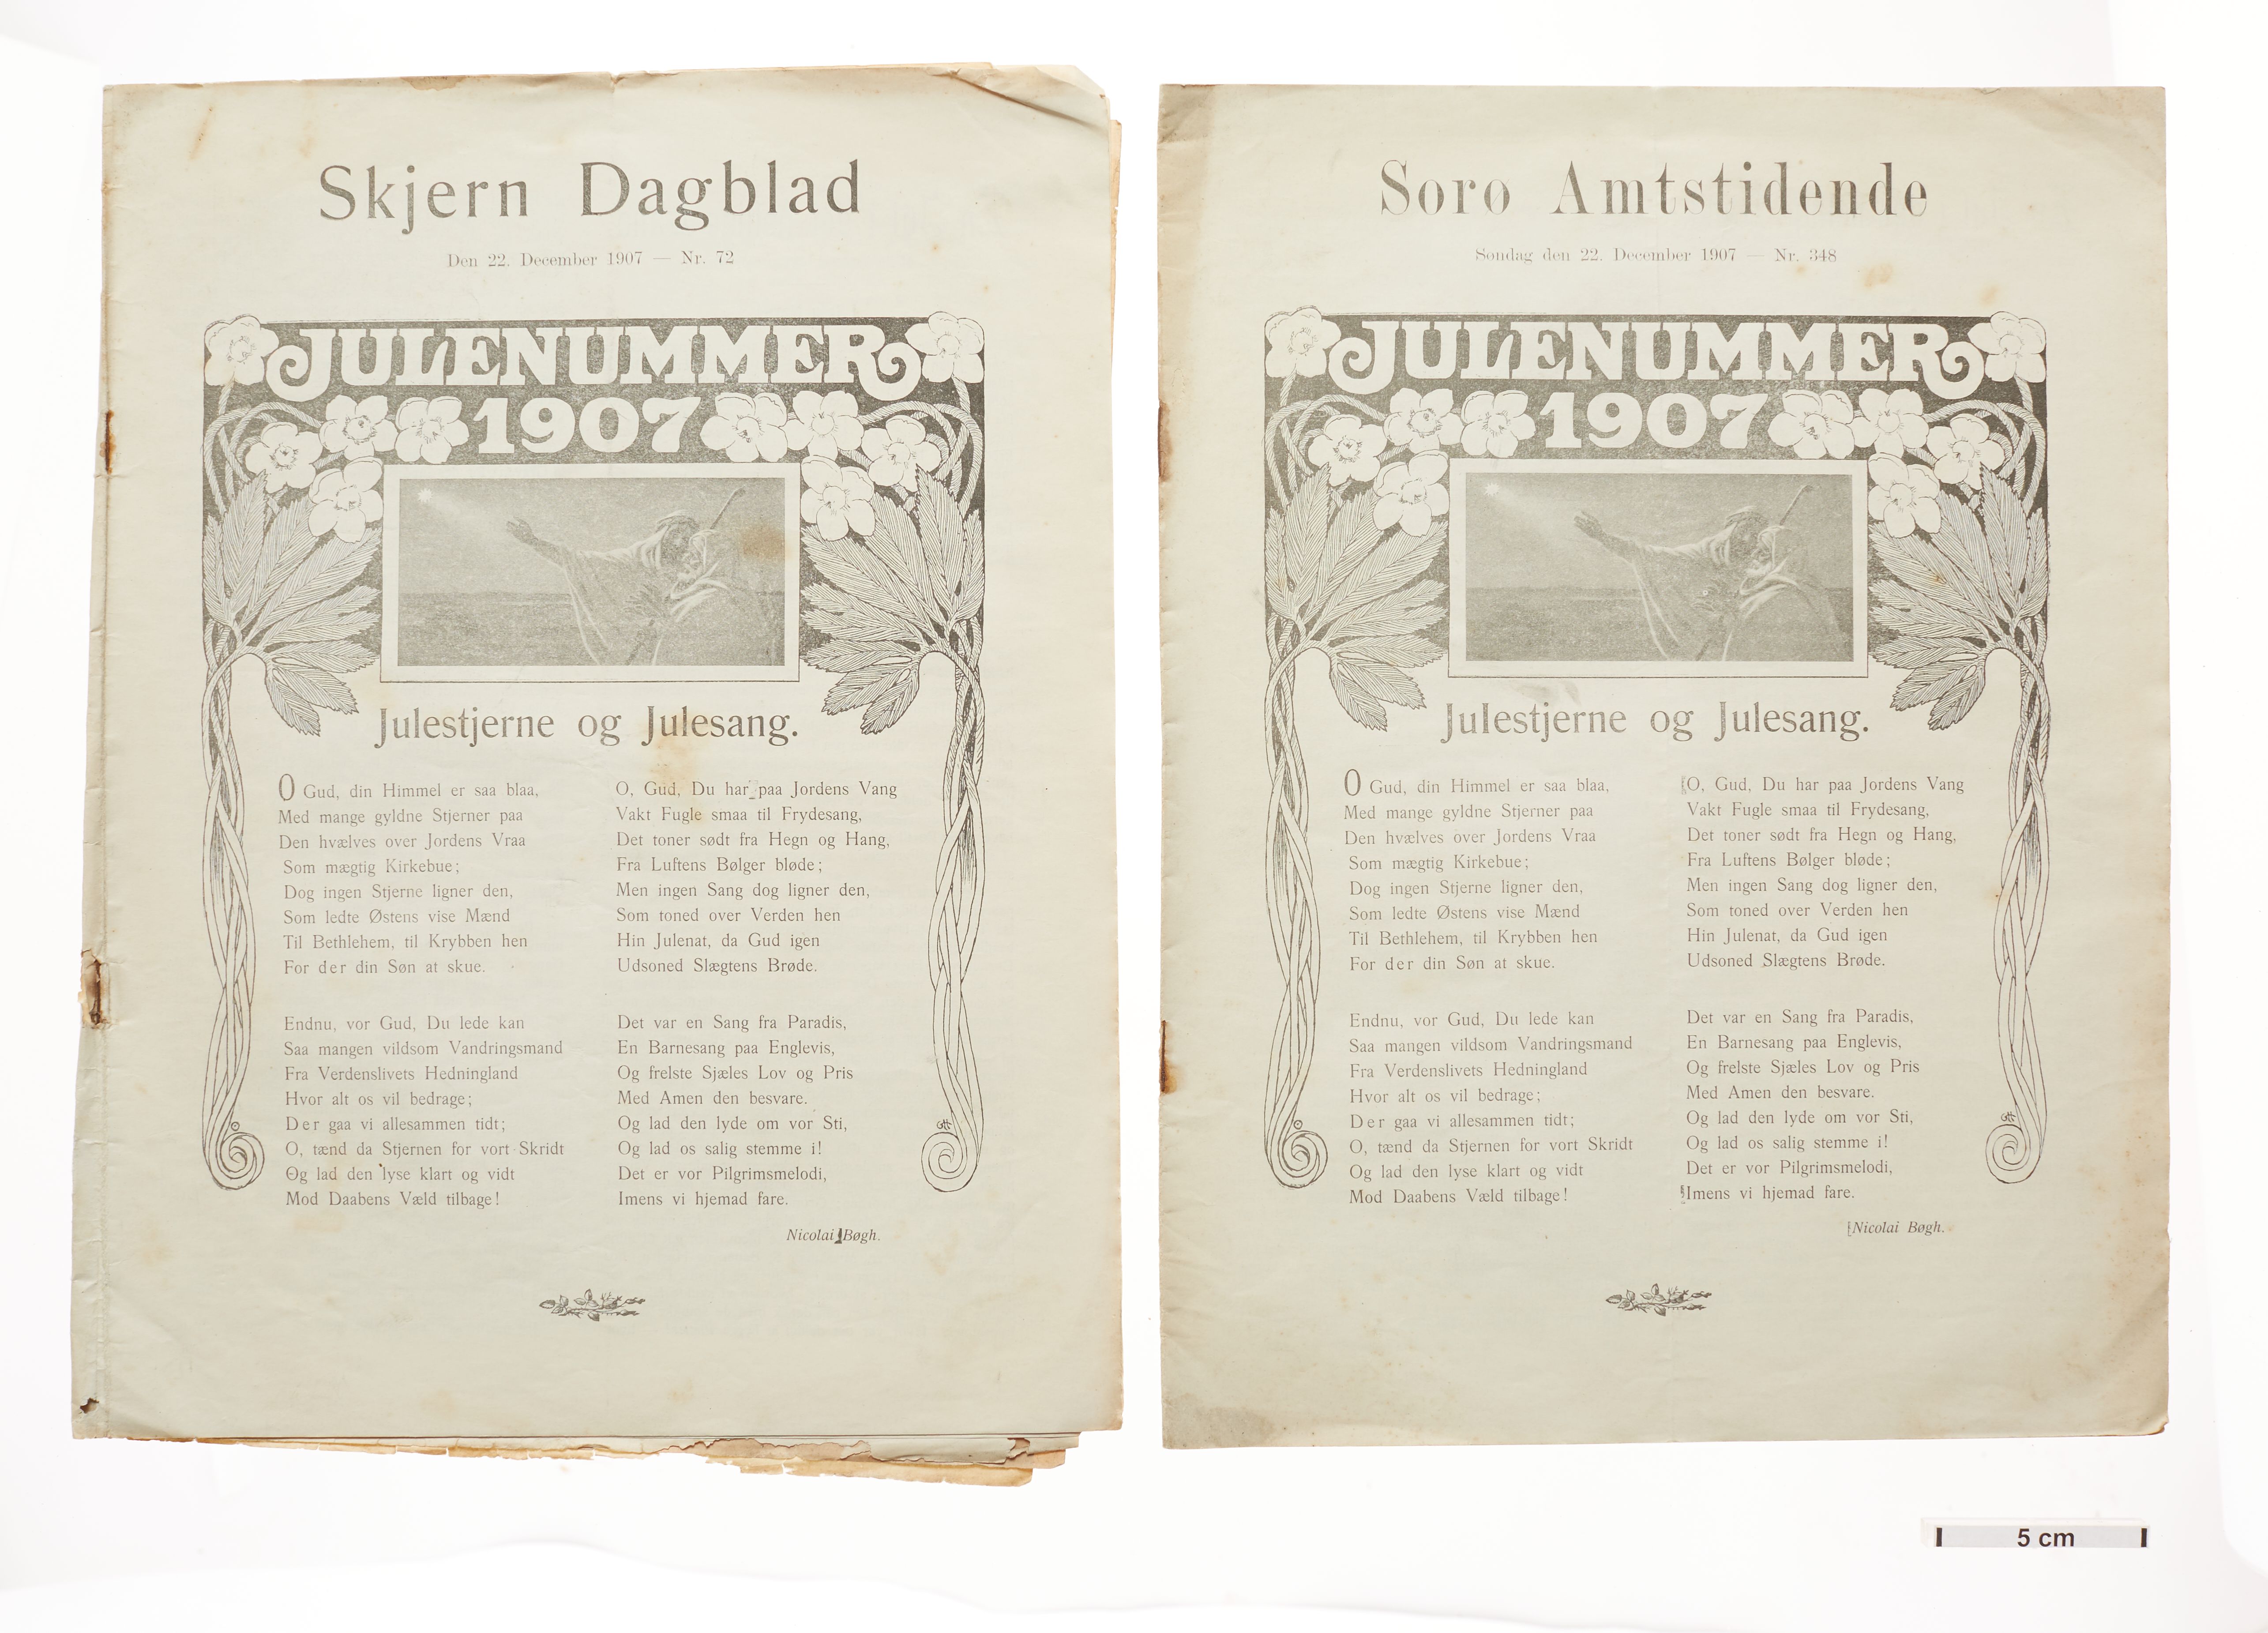 Skjern Dagblad
Den 22. December 1907 — Nr. 72
JULENUMMER
1907
Julestjerne og Julesang.
O Gud, din Himmel er saa blaa,
Med mange gyldne Stjerner paa
Den hvælves over Jordens Vraa
Som mægtig Kirkebue;
Dog ingen Stjerne ligner den,
Som ledte Østens vise Mænd
Til Bethlehem, til Krybben hen
For der din Søn at skue.
Endnu, vor Gud, Du lede kan
Saa mangen vildsom Vandringsmand
Fra Verdenslivets Hedningland
Hvor alt os vil bedrage;
Der gaa vi allesammen tidt;
O, tænd da Stjernen for vort Skridt
Og lad den lyse klart og vidt
Mod Daabens Væld tilbage!
O, Gud, Du har paa Jordens Vang
Vakt Fugle smaa til Frydesang,
Det toner sødt fra Hegn og Hang,
Fra Luftens Bølger bløde;
Men ingen Sang dog ligner den,
Som toned over Verden hen
Hin Julenat, da Gud igen
Udsoned Slægtens Brøde.
Det var en Sang fra Paradis,
En Barnesang paa Englevis,
Og frelste Sjæles Lov og Pris
Med Amen den besvare.
Og lad den lyde om vor Sti,
Og lad os salig stemme i!
Det er vor Pilgrimsmelodi,
Imens vi hjemad fare.
Nicolai Bøgh.
Sorø Amtstidende
Søndag den 22. December 1907 — Nr. 348
JULENUMMER
1907
Julestjerne og Julesang.
O Gud, din Himmel er saa blaa,
Med mange gyldne Stjerner paa
Den hvælves over Jordens Vraa
Som mægtig Kirkebue;
Dog ingen Stjerne ligner den,
Som ledte Østens vise Mænd
Til Bethlehem, til Krybben hen
For der din Søn at skue.
Endnu, vor Gud, Du lede kan
Saa mangen vildsom Vandringsmand
Fra Verdenslivets Hedningland
Hvor alt os vil bedrage;
Der gaa vi allesammen tidt;
O, tænd da Stjernen for vort Skridt
Og lad den lyse klart og vidt
Mod Daabens Væld tilbage!
O, Gud, Du har paa Jordens Vang
Vakt Fugle smaa til Frydesang,
Det toner sødt fra Hegn og Hang,
Fra Luftens Bølger bløde;
Men ingen Sang dog ligner den,
Som toned over Verden hen
Hin Julenat, da Gud igen
Udsoned Slægtens Brøde.
Det var en Sang fra Paradis,
En Barnesang paa Englevis,
Og frelste Sjæles Lov og Pris
Med Amen den besvare.
Og lad den lyde om vor Sti,
Og lad os salig stemme i!
Det er vor Pilgrimsmelodi,
Imens vi hjemad fare.
Nicolai Bøgh.
5 cm